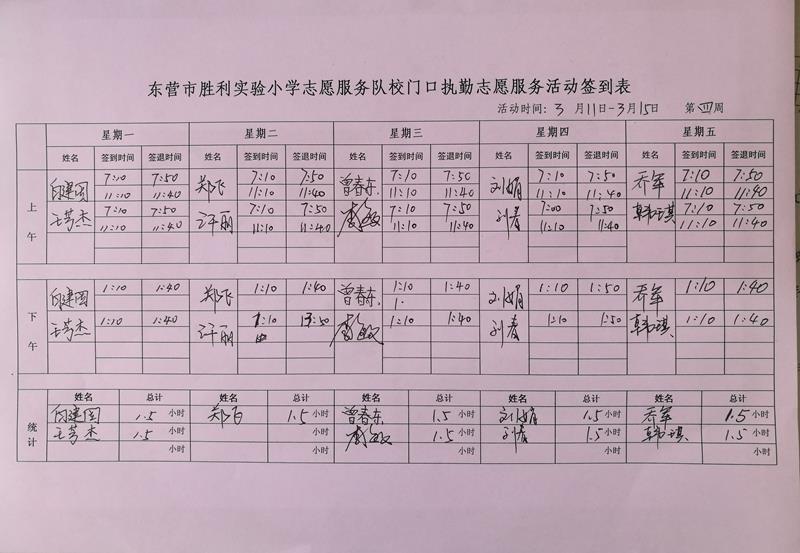 东营市胜利实验小学志愿服务队校门口执勤志愿服务活动签到表
活动时间: 3 月11日-3月15日 第四周
星期一 星期二 星期三 星期四 星期五
姓名 签到时间 签退时间 姓名 签到时间 签退时间 姓名 签到时间 签退时间 姓名 签到时间 签退时间 姓名 签到时间 签退时间
上午
7:10 7:50 郑飞 7:10 7:50 曾春东 7:10 7:50 刘娟 7:10 7:50 乔军 7:10 7:50
11:10 11:40 11:10 11:40 11:10 11:40 11:10 11:40 11:10 11:40
王芳杰 7:10 7:50 许丽 7:10 7:50 7:10 7:50 刘春 7:00 7:50 韩琪 7:10 7:50
11:10 11:40 11:10 11:40 11:10 11:40 11:10 11:40 11:10 11:40
下午
1:10 1:40 郑飞 1:10 1:40 曾春东 1:10 1:40 刘娟 1:10 1:50 乔军 1:10 1:40
1·
王芳杰 1:10 1:40 许丽 1:10 1:50 1:10 1:40 刘春 1:10 1:50 韩琪 1:10 1:40
统计
姓名 总计 姓名 总计 姓名 总计 姓名 总计 姓名 总计
1.5 小时 1.5 小时 曾春东 1.5 小时 刘娟 1.5 小时 乔军 1.5 小时
王芳杰 1.5 小时 小时 1.5 小时 刘春 1.5 小时 韩琪 1.5 小时
小时 小时 小时 小时 小时